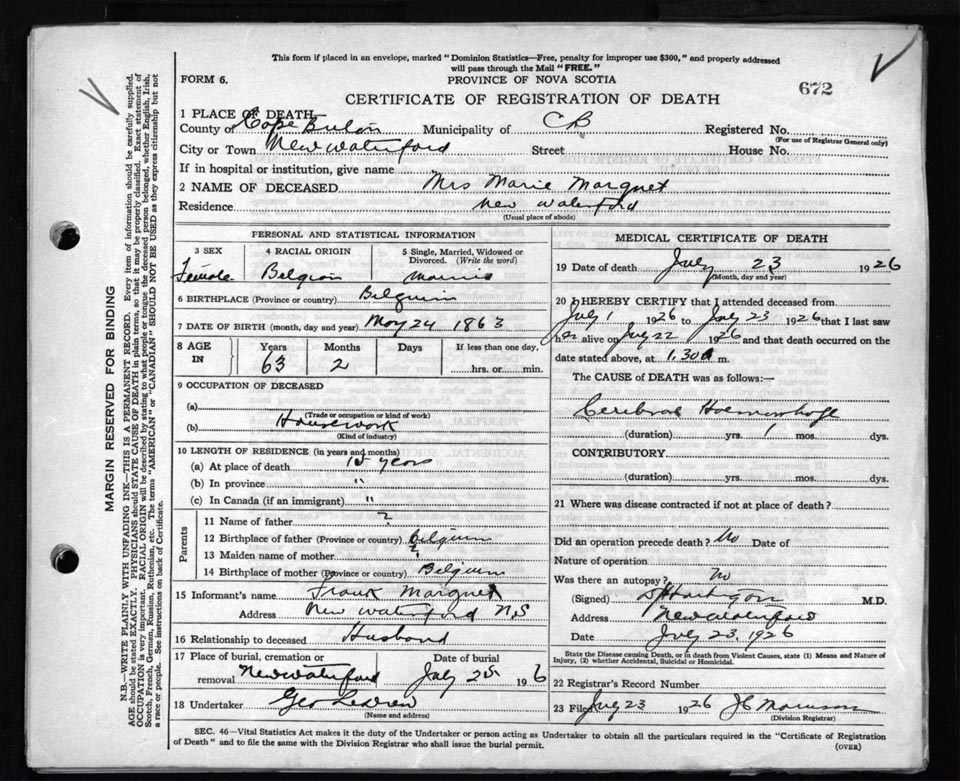 This form if placed in an envelope, marked "Dominion Statistics—Free, penalty for improper use $300," and properly addressed
will pass through the Mail "FREE."
FORM 6.
PROVINCE OF NOVA SCOTIA
672
CERTIFICATE OF REGISTRATION OF DEATH
1 PLACE OF DEATH
County of Cape Breton Municipality of CB Registered No.
(For use of Registrar General only)
City or Town New Waterford Street House No.
If in hospital or institution, give name
2 NAME OF DECEASED Mrs Marie Marquet
Residence New Waterford
(Usual place of abode)
PERSONAL AND STATISTICAL INFORMATION
3 SEX 4 RACIAL ORIGIN 5 Single, Married, Widowed or Divorced. (Write the word)
Female Belgian
6 BIRTHPLACE (Province or country) Belguim
7 DATE OF BIRTH (month, day and year) May 24 1863
8 AGE IN Years Months Days If less than one day,
63 2 hrs. or min.
9 OCCUPATION OF DECEASED
(a)
(Trade or occupation or kind of work)
(b) Housework
(Kind of industry)
10 LENGTH OF RESIDENCE (in years and months)
(a) At place of death 15 years
(b) In province "
(c) In Canada (if an immigrant) "
Parents
11 Name of father ?
12 Birthplace of father (Province or country) Belguim
13 Maiden name of mother ?
14 Birthplace of mother (Province or country) Belguim
15 Informant's name Frank Marquet
Address New Waterford N,S
16 Relationship to deceased Husband
17 Place of burial, cremation or removal New Waterford Date of burial July 25 1926
18 Undertaker Geo
(Name and address)
MEDICAL CERTIFICATE OF DEATH
19 Date of death July 23 1926
(Month, day and year)
20 I HEREBY CERTIFY that I attended deceased from
July 1 1926 to July 23 1926 that I last saw
her alive on July 22 1926 and that death occurred on the
date stated above, at 1.30 A m.
The CAUSE of DEATH was as follows:—
Cerebral Haemorrhage
(duration) yrs. 1 mos. dys.
CONTRIBUTORY
(duration) yrs. mos. dys.
21 Where was disease contracted if not at place of death?
Did an operation precede death? No Date of
Nature of operation
Was there an autopsy? No
(Signed) M.D.
Address New Waterford
Date July 23, 1926
State the Disease causing Death, or in death from Violent Causes, state (1) Means and Nature of
Injury, (2) whether Accidental, Suicidal or Homicidal.
22 Registrar's Record Number
23 Filed July 23 1926 J C Morrison
(Division Registrar)
SEC. 46—Vital Statistics Act makes it the duty of the Undertaker or person acting as Undertaker to obtain all the particulars required in the "Certificate of Registration
of Death" and to file the same with the Division Registrar who shall issue the burial permit.
(OVER)
MARGIN RESERVED FOR BINDING
N.B.—WRITE PLAINLY WITH UNFADING INK—THIS IS A PERMANENT RECORD. Every item of information should be carefully supplied.
AGE should be stated EXACTLY. PHYSICIANS should STATE CAUSE OF DEATH in plain terms, so that it may be properly classified. Exact statement of
OCCUPATION is very important. RACIAL ORIGIN will be described by stating to what people or tongue the deceased person belonged, whether English, Irish,
Scotch, French, German, Russian, Ruthenian, etc. The terms "AMERICAN" or "CANADIAN" SHOULD NOT BE USED as they express citizenship but not
a race or people. See instructions on back of Certificate.